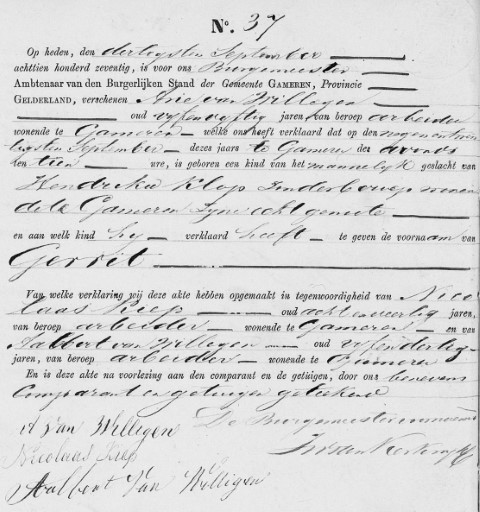 No. 37
Op heden, den dertigsten September
achttien honderd zeventig, is voor ons Burgemeester
Ambtenaar van den Burgerlijken Stand der Gemeente GAMEREN, Provincie
GELDERLAND, verschenen Arie van Willegen
oud vijfenvijftig jaren, van beroep arbeider
wonende te Gameren welke ons heeft verklaard dat op den negenentwin
tigsten September dezes jaars te Gameren des avonds
ten tien ure, is geboren een kind van het mannelijk geslacht van
Hendrika Klop zonder beroep wonen
de te Gameren zijne echtgenoote
en aan welk kind hij verklaard heeft te geven de voornaam van
Gerrit
Van welke verklaring wij deze akte hebben opgemaakt in tegenwoordigheid van Nico
laas Kiep oud achtenveertig jaren,
van beroep arbeider wonende te Gameren en van
Aalbert van Willegen oud vijfendertig
jaren, van beroep arbeider wonende te Gameren
En is deze akte na voorlezing aan den comparant en de getuigen, door ons benevens
Comparant en getuigen geteekend
A van Willigen De Burgemeester voornoemd
Nicolaas Kiep
Aalbert Van Willigen